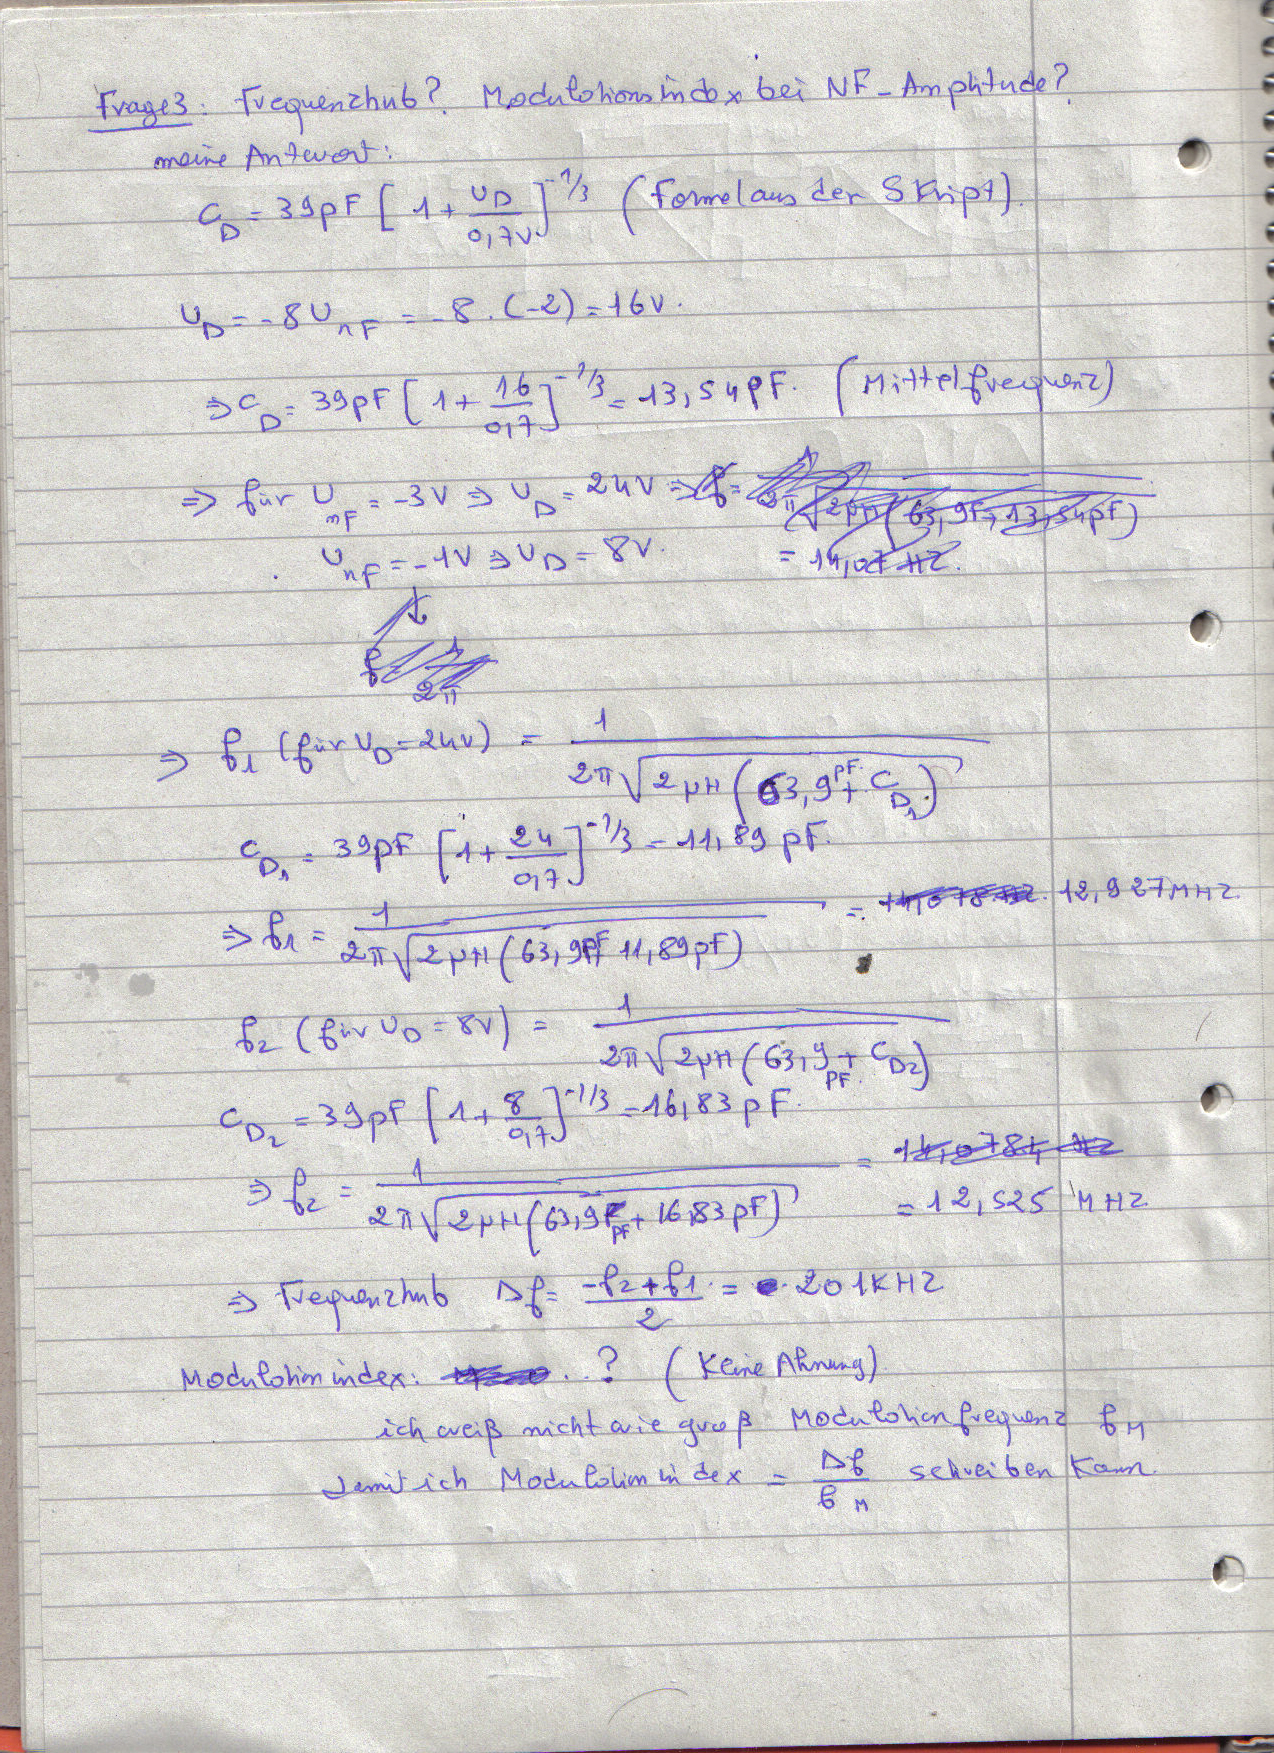 Frage3: Frequenzhub? Modulationsindex bei NF-Amplitude?
meine Antwort:
C_D = 39pF [1 + U_D/0,7V]^-1/3 (Formel aus der Skript).
U_D = -8U_nF = -8.(-2) = 16V.
⇒ C_D = 39pF [1 + 16/0,7]^-1/3 = 13,54pF. (Mittelfrequenz)
⇒ für U_nF = -3V ⇒ U_D = 24V ⇒ f = 1/2π√2μH(63,9F+13,54pF)
U_nF = -1V ⇒ U_D = 8V. = 14,07 HZ.
f 1/2π
⇒ f1 (für U_D = 24V) = 1/2π√2μH(63,9pF + C_D1)
C_D1 = 39pF [1 + 24/0,7]^-1/3 = 11,89 pF.
⇒ f1 = 1/2π√2μH(63,9pF+ 11,89pF) = 12,927MHZ
f2 (für U_D = 8V) = 1/2π√2μH(63,9pF + C_D2)
C_D2 = 39pF [1 + 8/0,7]^-1/3 = 16,83pF.
⇒ f2 = 1/2π√2μH(63,9pF + 16,83pF) = 14,0784 HZ
= 12,525 MHZ
⇒ Frequenzhub Δf = -f2 + f1/2 = 201KHZ
Modulationindex: ..? (Keine Ahnung)
ich weiß nicht wie groß Modulationfrequenz f_M
damit ich Modulationindex = Δf/f_M schreiben kann.